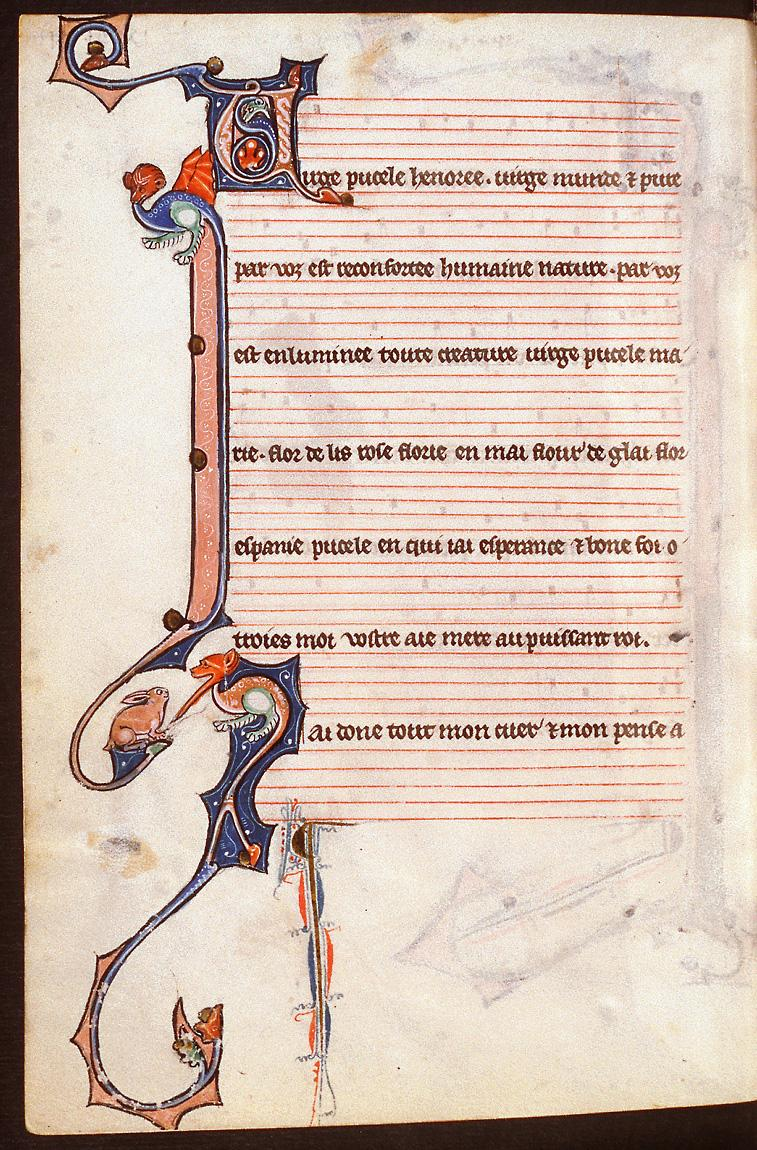 Uirge pucele henoree. uirge munde ⁊ pure
par voz est reconfortee humaine nature. par voz
est enluminee toute creature uirge pucele ma
rie. flor de lis rose florie en mai flour de glai flor
espanie pucele en qui iai esperance ⁊ bone foi o
troies moi vostre aie mere au puissant roi.
J'ai done tout mon cuer ⁊ mon pense a